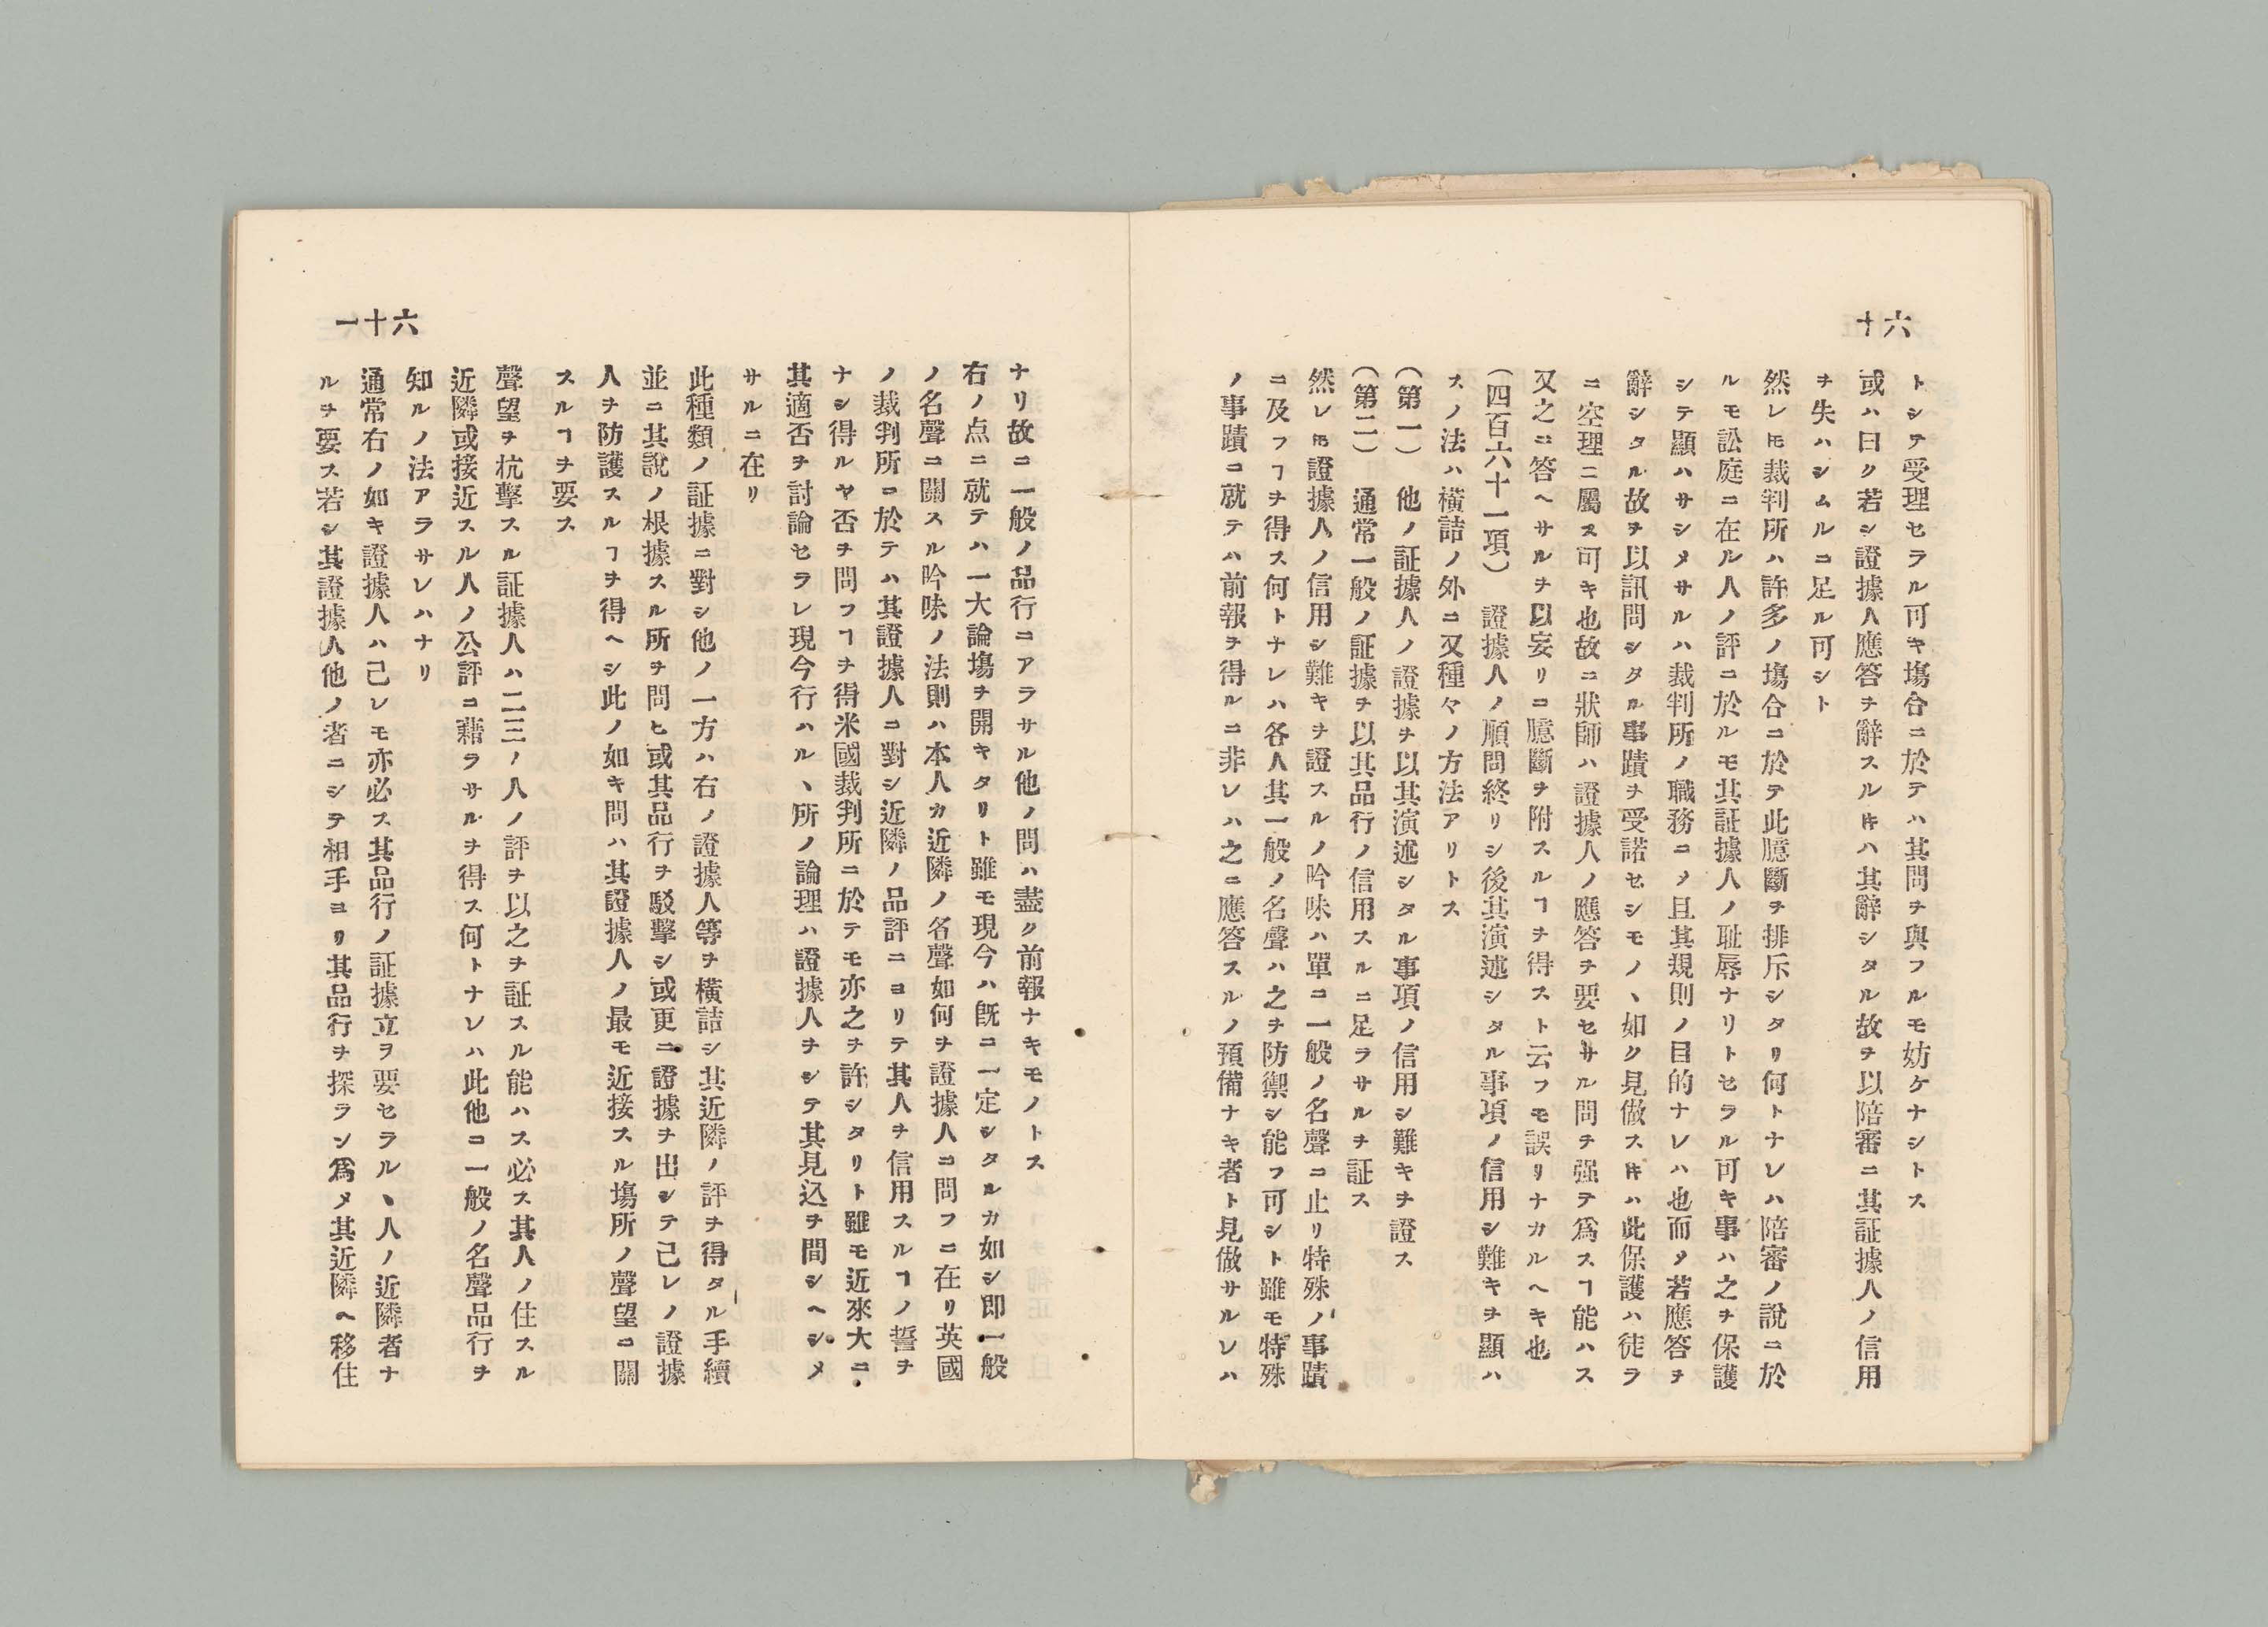 六十
トシテ受理セラル可キ塲合ニ於テハ其問ヲ與フルモ妨ケナシトス
或ハ曰ク若シ證據人應答ヲ辭スル𪜈ハ其辭シタル故ヲ以陪審ニ其証據人ノ信用
ヲ失ハシムルニ足ル可シト
然レ𪜈裁判所ハ許多ノ塲合ニ於テ此臆斷ヲ排斥シタリ何トナレハ陪審ノ說ニ於
ルモ訟庭ニ在ル人ノ評ニ於ルモ其証據人ノ耻辱ナリトセラル可キ事ハ之ヲ保護
シテ顯ハサシメサルハ裁判所ノ職務ニ〆且其規則ノ目的ナレハ也而〆若應答ヲ
辭シタル故ヲ以訊問シタル事蹟ヲ受諾セシモノヽ如ク見做ス𪜈ハ此保護ハ徒ラ
ニ空理ニ屬ス可キ也故ニ狀師ハ證據人ノ應答ヲ要セサル問ヲ强テ爲スヿ能ハス
又之ニ答ヘサルヲ以妄リニ臆斷ヲ附スルヿヲ得スト云フモ誤リナカルヘキ也
(四百六十一項) 證據人ノ順問終リシ後其演述シタル事項ノ信用シ難キヲ顯ハ
スノ法ハ橫詰ノ外ニ又種々ノ方法アリトス
(第一) 他ノ証據人ノ證據ヲ以其演述シタル事項ノ信用シ難キヲ證ス
(第二) 通常一般ノ証據ヲ以其品行ノ信用スルニ足ラサルヲ証ス
然レ𪜈證據人ノ信用シ難キヲ證スルノ吟味ハ單ニ一般ノ名聲ニ止リ特殊ノ事蹟
ニ及フヿヲ得ス何トナレハ各人其一般ノ名聲ハ之ヲ防禦シ能フ可シト雖モ特殊
ノ事蹟ニ就テハ前報ヲ得ルニ非レハ之ニ應答スルノ預備ナキ者ト見做サルレハ
六十一
ナリ故ニ一般ノ品行ニアラサル他ノ問ハ盡ク前報ナキモノトス
右ノ点ニ就テハ一大論塲ヲ開キタリト雖モ現今ハ旣ニ一定シタルカ如シ即一般
ノ名聲ニ關スル吟味ノ法則ハ本人カ近隣ノ名聲如何ヲ證據人ニ問フニ在リ英國
ノ裁判所ニ於テハ其證據人ニ對シ近隣ノ品評ニヨリテ其人ヲ信用スルヿノ誓ヲ
ナシ得ルヤ否ヲ問フヿヲ得米國裁判所ニ於テモ亦之ヲ許シタリト雖モ近來大ニ
其適否ヲ討論セラレ現今行ハルヽ所ノ論理ハ證據人ヲシテ其見込ヲ問シヘシメ
サルニ在リ
此種類ノ証據ニ對シ他ノ一方ハ右ノ證據人等ヲ橫詰シ其近隣ノ評ヲ得タル手續
並ニ其說ノ根據スル所ヲ問ヒ或其品行ヲ駁擊シ或更ニ證據ヲ出シテ己レノ證據
人ヲ防護スルヿヲ得ヘシ此ノ如キ問ハ其證據人ノ最モ近接スル塲所ノ聲望ニ關
スルヿヲ要ス
聲望ヲ杭擊スル証據人ハ二三ノ人ノ評ヲ以之ヲ証スル能ハス必ス其人ノ住スル
近隣或接近スル人ノ公評ニ藉ラサルヲ得ス何トナレハ此他ニ一般ノ名聲品行ヲ
知ルノ法アラサレハナリ
通常右ノ如キ證據人ハ己レモ亦必ス其品行ノ証據立ヲ要セラルヽ人ノ近隣者ナ
ルヲ要ス若シ其證據人他ノ者ニシテ相手ヨリ其品行ヲ探ラン爲メ其近隣ヘ移住